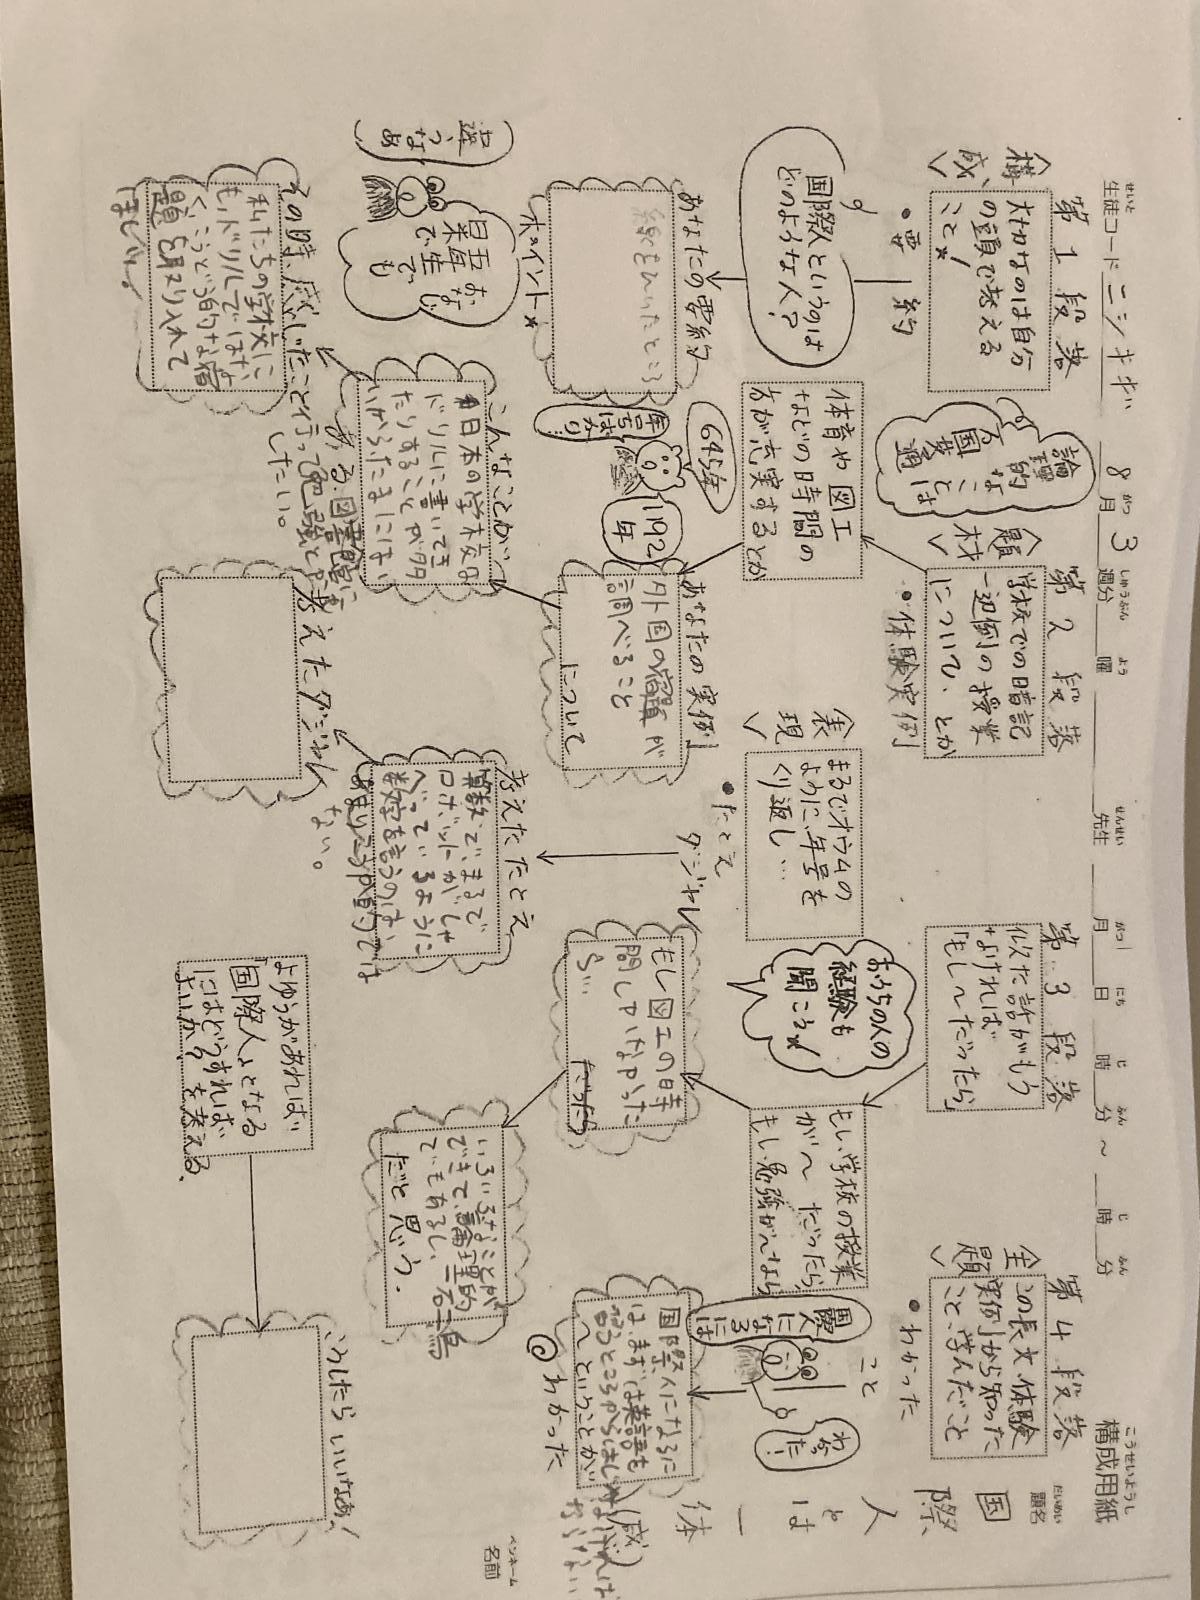 構成用紙
こうせいようし
生徒コード ニシキギ 8月3週分 曜 先生 月 日 時 分 ～ 時 分
題名
だいめい
国際人とは一体
ペンネーム
名前
第1段落
＜構成＞
大切なのは自分
の頭で考える
こと☆!
・要約
国際人というのは
どのような人?
あなたの要約
ポイント☆
おなじ
でも
違うなぁ
その時、感じたこと
私たちの学校に
もドリルではな
宿
題を取り入れて
ほしい。
第2段落
＜題材＞
学校での暗記
一辺倒の授業
について、とか
・体験実例
論理
的
なことは
万国共通
体育や図工
などの時間の
方が充実するとか
645年
1192年
年号ばかり…
あなたの実例
外国の宿題が
調べること
について
こんなことが…
日本の学校の
ドリルに書いてき
たりすることが多
いからたまには
ある。図書館に
行って勉強とか
したい。
考えたダジャレ
＜表現＞
まるでオウムの
ように、年号を
くり返し…
・たとえ
ダジャレ
考えたたとえ
算数で、まるで
ロボットがしゃ
べているように
数字を言うのは、
あまりこうか的では
ない。
第3段落
似た話がもう
なければ
「もし～だったら」
おうちの人の
経験も
聞こう☆!
もし、学校の授業
が～だったら、
もし、勉強が～なら
もし図工の時
間しかなかった
ら…
だったら
いろいろなことが
できて、論理的
でもあるし、一石二鳥
だと思う。
よゆうがあれば
「国際人」となる
にはどうすれば
よいか?を考える。
こうしたらいいなぁ!
第4段落
＜主題＞
この長文・体験
実例から知った
こと、学んだこと
・わかった
こと
国際人になるには
わかった!
国際人になるに
は、まずは英語を
ということが
わかった